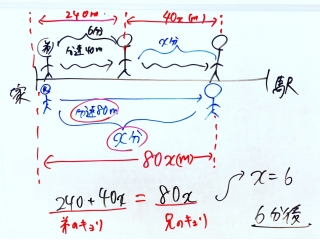 240m 40x(m)
弟 6分 x分
分速40m
家 駅
分速80m
x分
80x(m)
240+40x = 80x → x=6
弟のキョリ 兄のキョリ 6分後